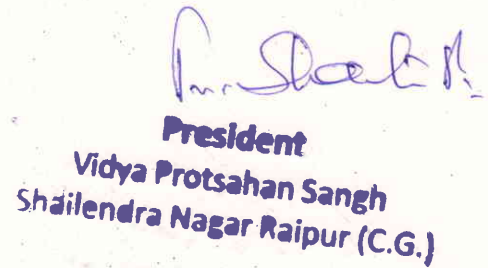 President
Vidya Protsahan Sangh
Shailendra Nagar Raipur (C.G.)